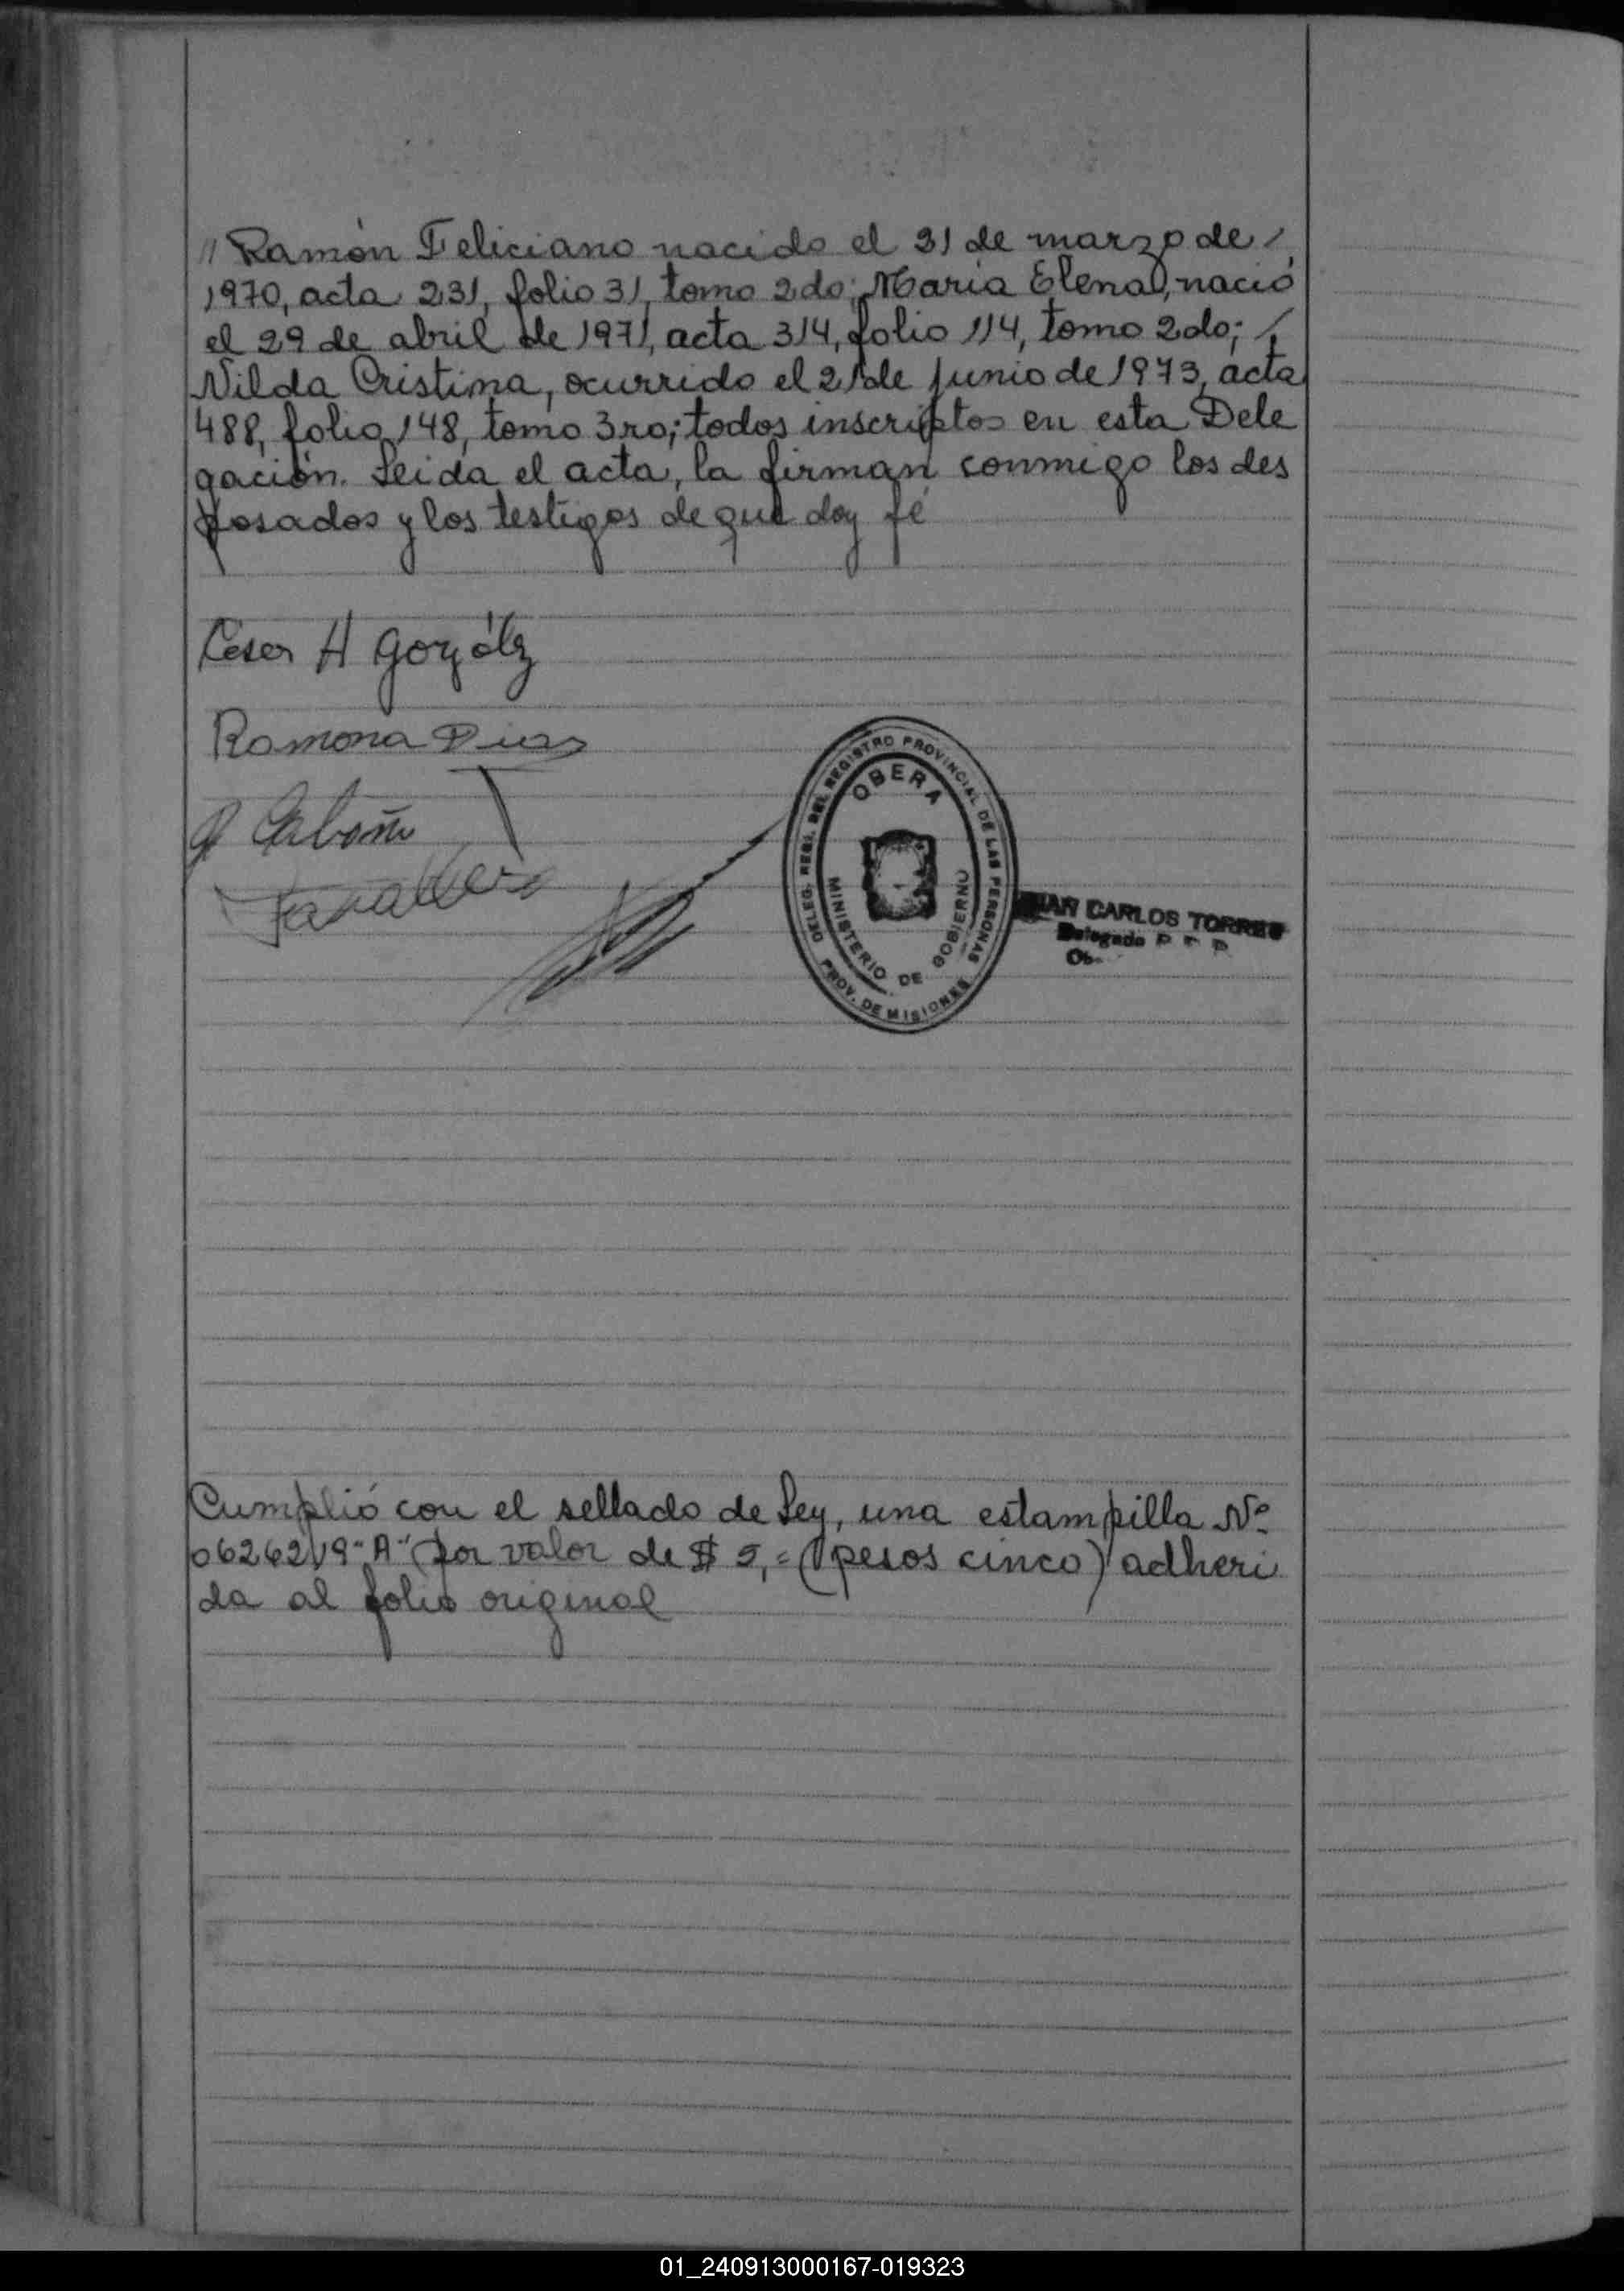 // Ramón Feliciano nacido el 31 de marzo de /
1970, acta 231, folio 31, tomo 2do; María Elena, nació
el 29 de abril de 1971, acta 314, folio 114, tomo 2do; /
Nilda Cristina, ocurrido el 21 de junio de 1973, acta
488, folio 148, tomo 3ro; todos inscriptos en esta Dele
gación. Leida el acta, la firman conmigo los des
posados y los testigos de que doy fé
Cesar H González
Ramona Dias
OBERA
DELEG. REGI. DEL REGISTRO PROVINCIAL DE LAS PERSONAS
MINISTERIO DE GOBIERNO
PROV. DE MISIONES
CARLOS TORRES
Delegado
Cumplió con el sellado de Ley, una estampilla Nº
0626219 "A" por valor de $ 5,= (pesos cinco) adheri
da al folio original
01_240913000167-019323